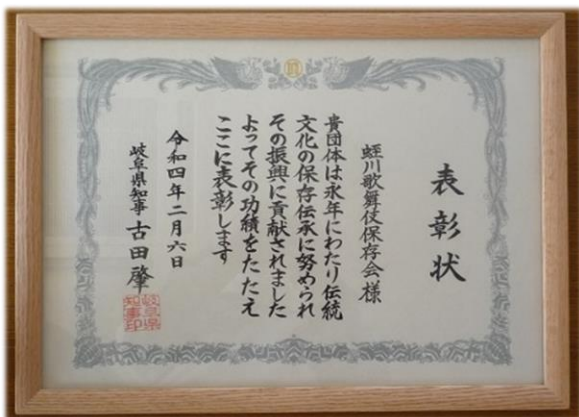 表彰状
蛭川歌舞伎保存会様
貴団体は永年にわたり伝統
文化の保存伝承に努められ
その振興に貢献されました
よってその功績をたたえ
ここに表彰します
令和四年二月六日
岐阜県知事 古田肇
岐阜県知事印